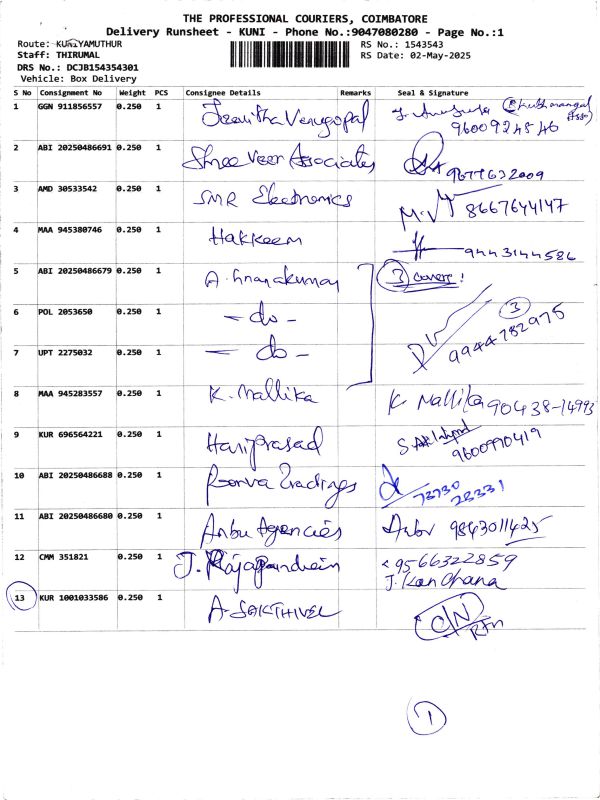 THE PROFESSIONAL COURIERS, COIMBATORE
Delivery Runsheet - KUNI - Phone No.:9047080280 - Page No.:1
Route: KUNIYAMUTHUR
RS No.: 1543543
Staff: THIRUMAL
RS Date: 02-May-2025
DRS No.: DCJB154354301
Vehicle: Box Delivery
S No Consignment No Weight PCS Consignee Details Remarks Seal & Signature
1 GGN 911856557 0.250 1 Venugopal
9600924546
2 ABI 20250486691 0.250 1 Shree Veer Associates 9677632009
3 AMD 30533542 0.250 1 SMR Electronics M.V 8667644147
4 MAA 945380746 0.250 1 Hakkeem 9443144586
5 ABI 20250486679 0.250 1 3 covers!
6 POL 2053650 0.250 1 - do - 3
7 UPT 2275032 0.250 1 - do - 9944782975
8 MAA 945283557 0.250 1 K. Mallika K Mallika 90438-14993
9 KUR 696564221 0.250 1 Hariprasad
9600990419
10 ABI 20250486688 0.250 1 Tradings 73730
23331
11 ABI 20250486680 0.250 1 Anbu Agencies Anbu 9843011425
12 CMM 351821 0.250 1 J. Rajapandian 9566322859
J. Kanchana
13 KUR 1001033586 0.250 1 A. SAKTHIVEL C/N
RTN
1